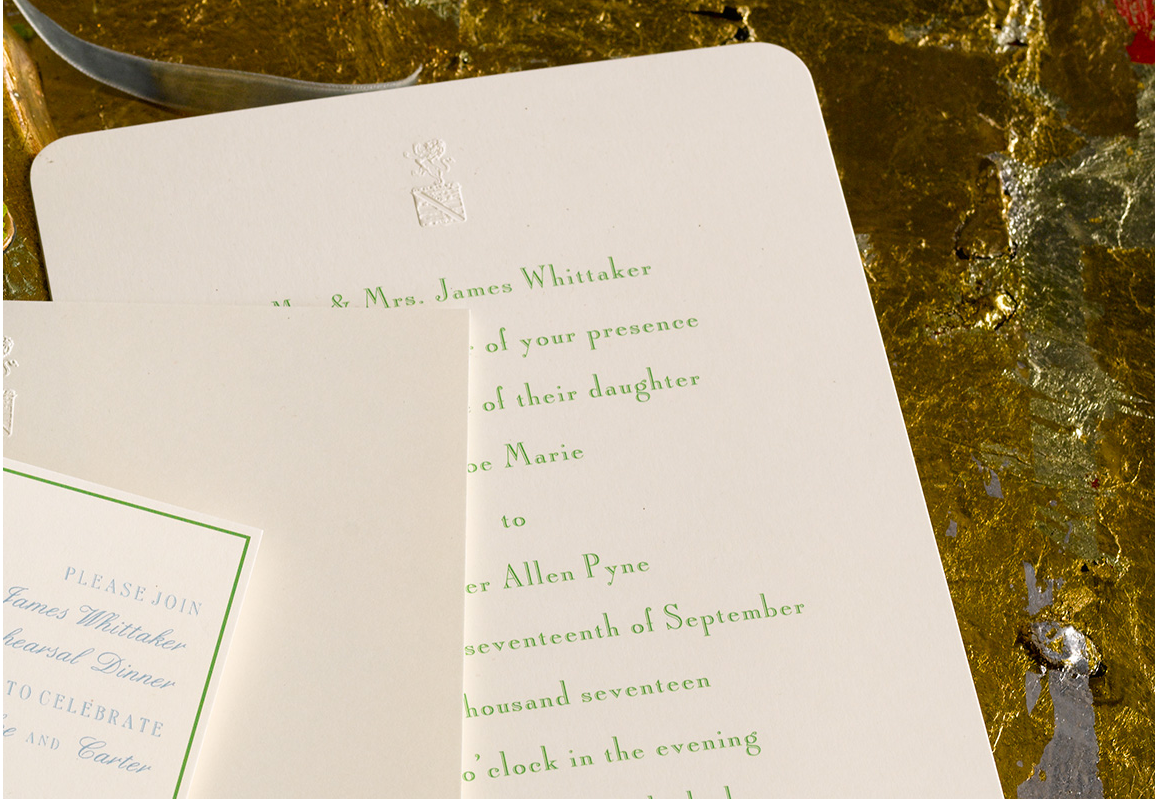 & Mrs. James Whittaker
of your presence
of their daughter
Marie
to
Allen Pyne
seventeenth of September
seventeen
o'clock in the evening
PLEASE JOIN
James Whittaker
Dinner
TO CELEBRATE
AND Carter